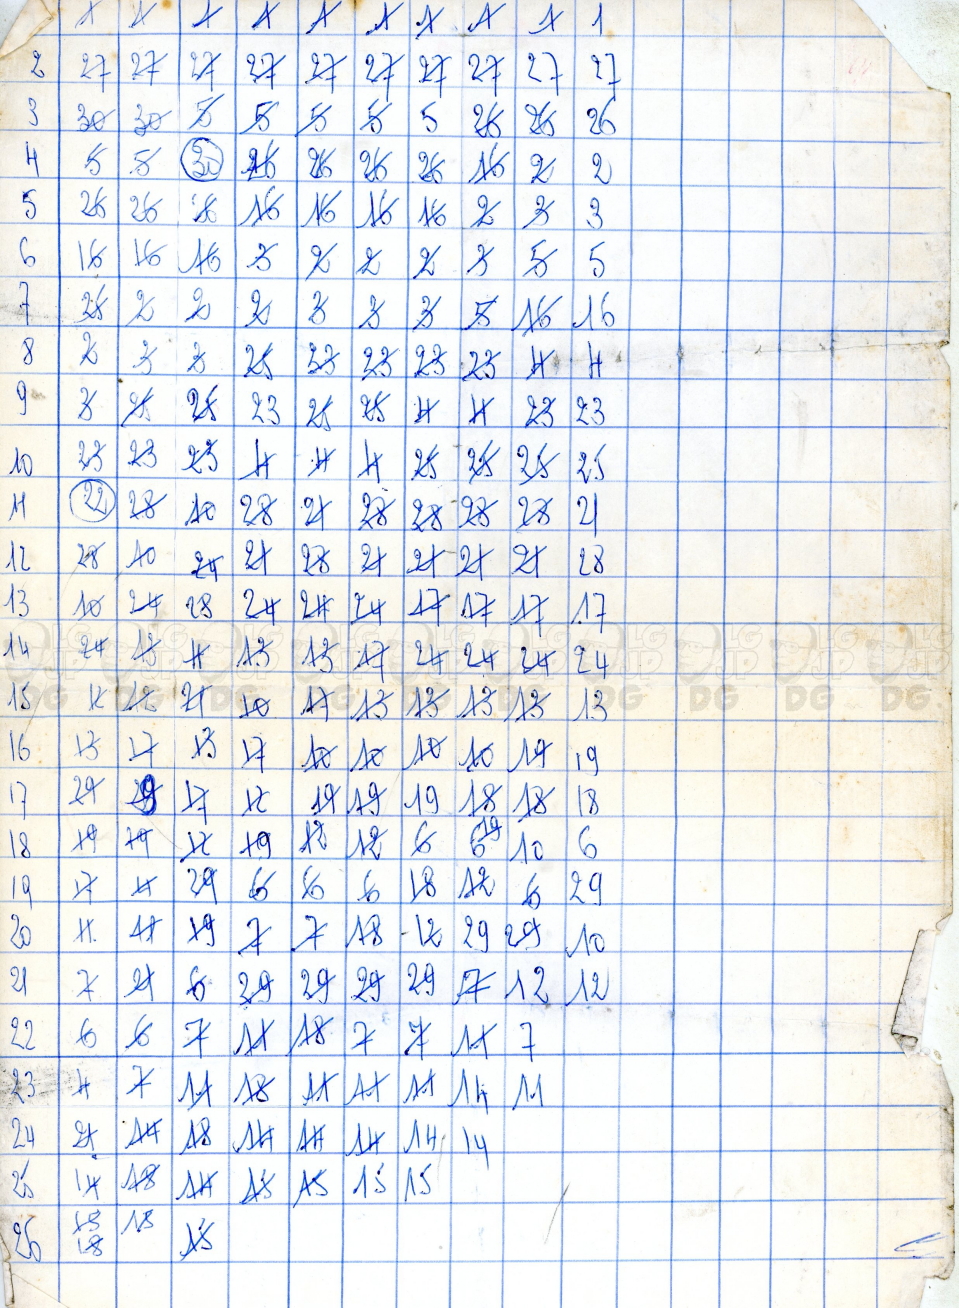 1 1 1 1 1 1 1 1 1 1
2 27 27 27 27 27 27 27 27 27 27
3 30 30 5 5 5 5 5 26 26 26
4 5 5 30 26 26 26 26 16 2 2
5 26 26 26 16 16 16 16 2 3 3
6 16 16 16 3 2 2 2 3 5 5
7 25 2 2 2 3 3 3 5 16 16
8 2 3 3 25 23 23 23 23 4 4
9 3 25 25 23 25 25 4 4 23 23
10 23 23 23 4 4 4 25 25 25 25
11 22 28 10 28 21 28 28 28 28 21
12 28 10 24 21 28 21 21 21 21 28
13 10 24 28 24 24 24 17 17 17 17
14 24 13 4 13 13 17 24 24 24 24
15 12 21 10 17 13 13 13 13 13
16 13 17 13 17 10 10 10 10 19 19
17 29 9 17 12 19 19 19 18 18 18
18 19 19 12 19 12 12 6 6 19 10 6
19 17 4 29 6 6 6 18 12 6 29
20 11 11 19 7 7 18 12 29 29 10
21 7 21 6 29 29 29 29 7 12 12
22 6 6 7 11 18 7 7 11 7
23 4 7 11 18 11 11 11 14 11
24 21 14 18 14 14 14 14 14
25 14 18 14 15 15 15 15
26 15 18 15
18
LG JP DG LG JP DG LG JP DG LG JP DG LG JP DG